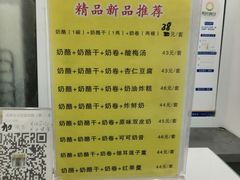 精品新品推荐
奶酪（1碗）+奶酪干（1两）+奶卷（两根）38元/套
奶酪+奶酪干+奶卷+酸梅汤 43元/套
奶酪+奶酪干+奶卷+杏仁豆腐 43元/套
奶酪+奶酪干+奶卷+奶油炸糕 46元/套
奶酪+奶酪干+奶卷+炸鲜奶 44元/套
奶酪+奶酪干+奶卷+原味双皮奶 45元/套
奶酪+奶酪干+奶卷+可可奶昔 46元/套
奶酪+奶酪干+奶卷+银耳莲子羹 44元/套
奶酪+奶酪干+奶卷+红果羹 44元/套